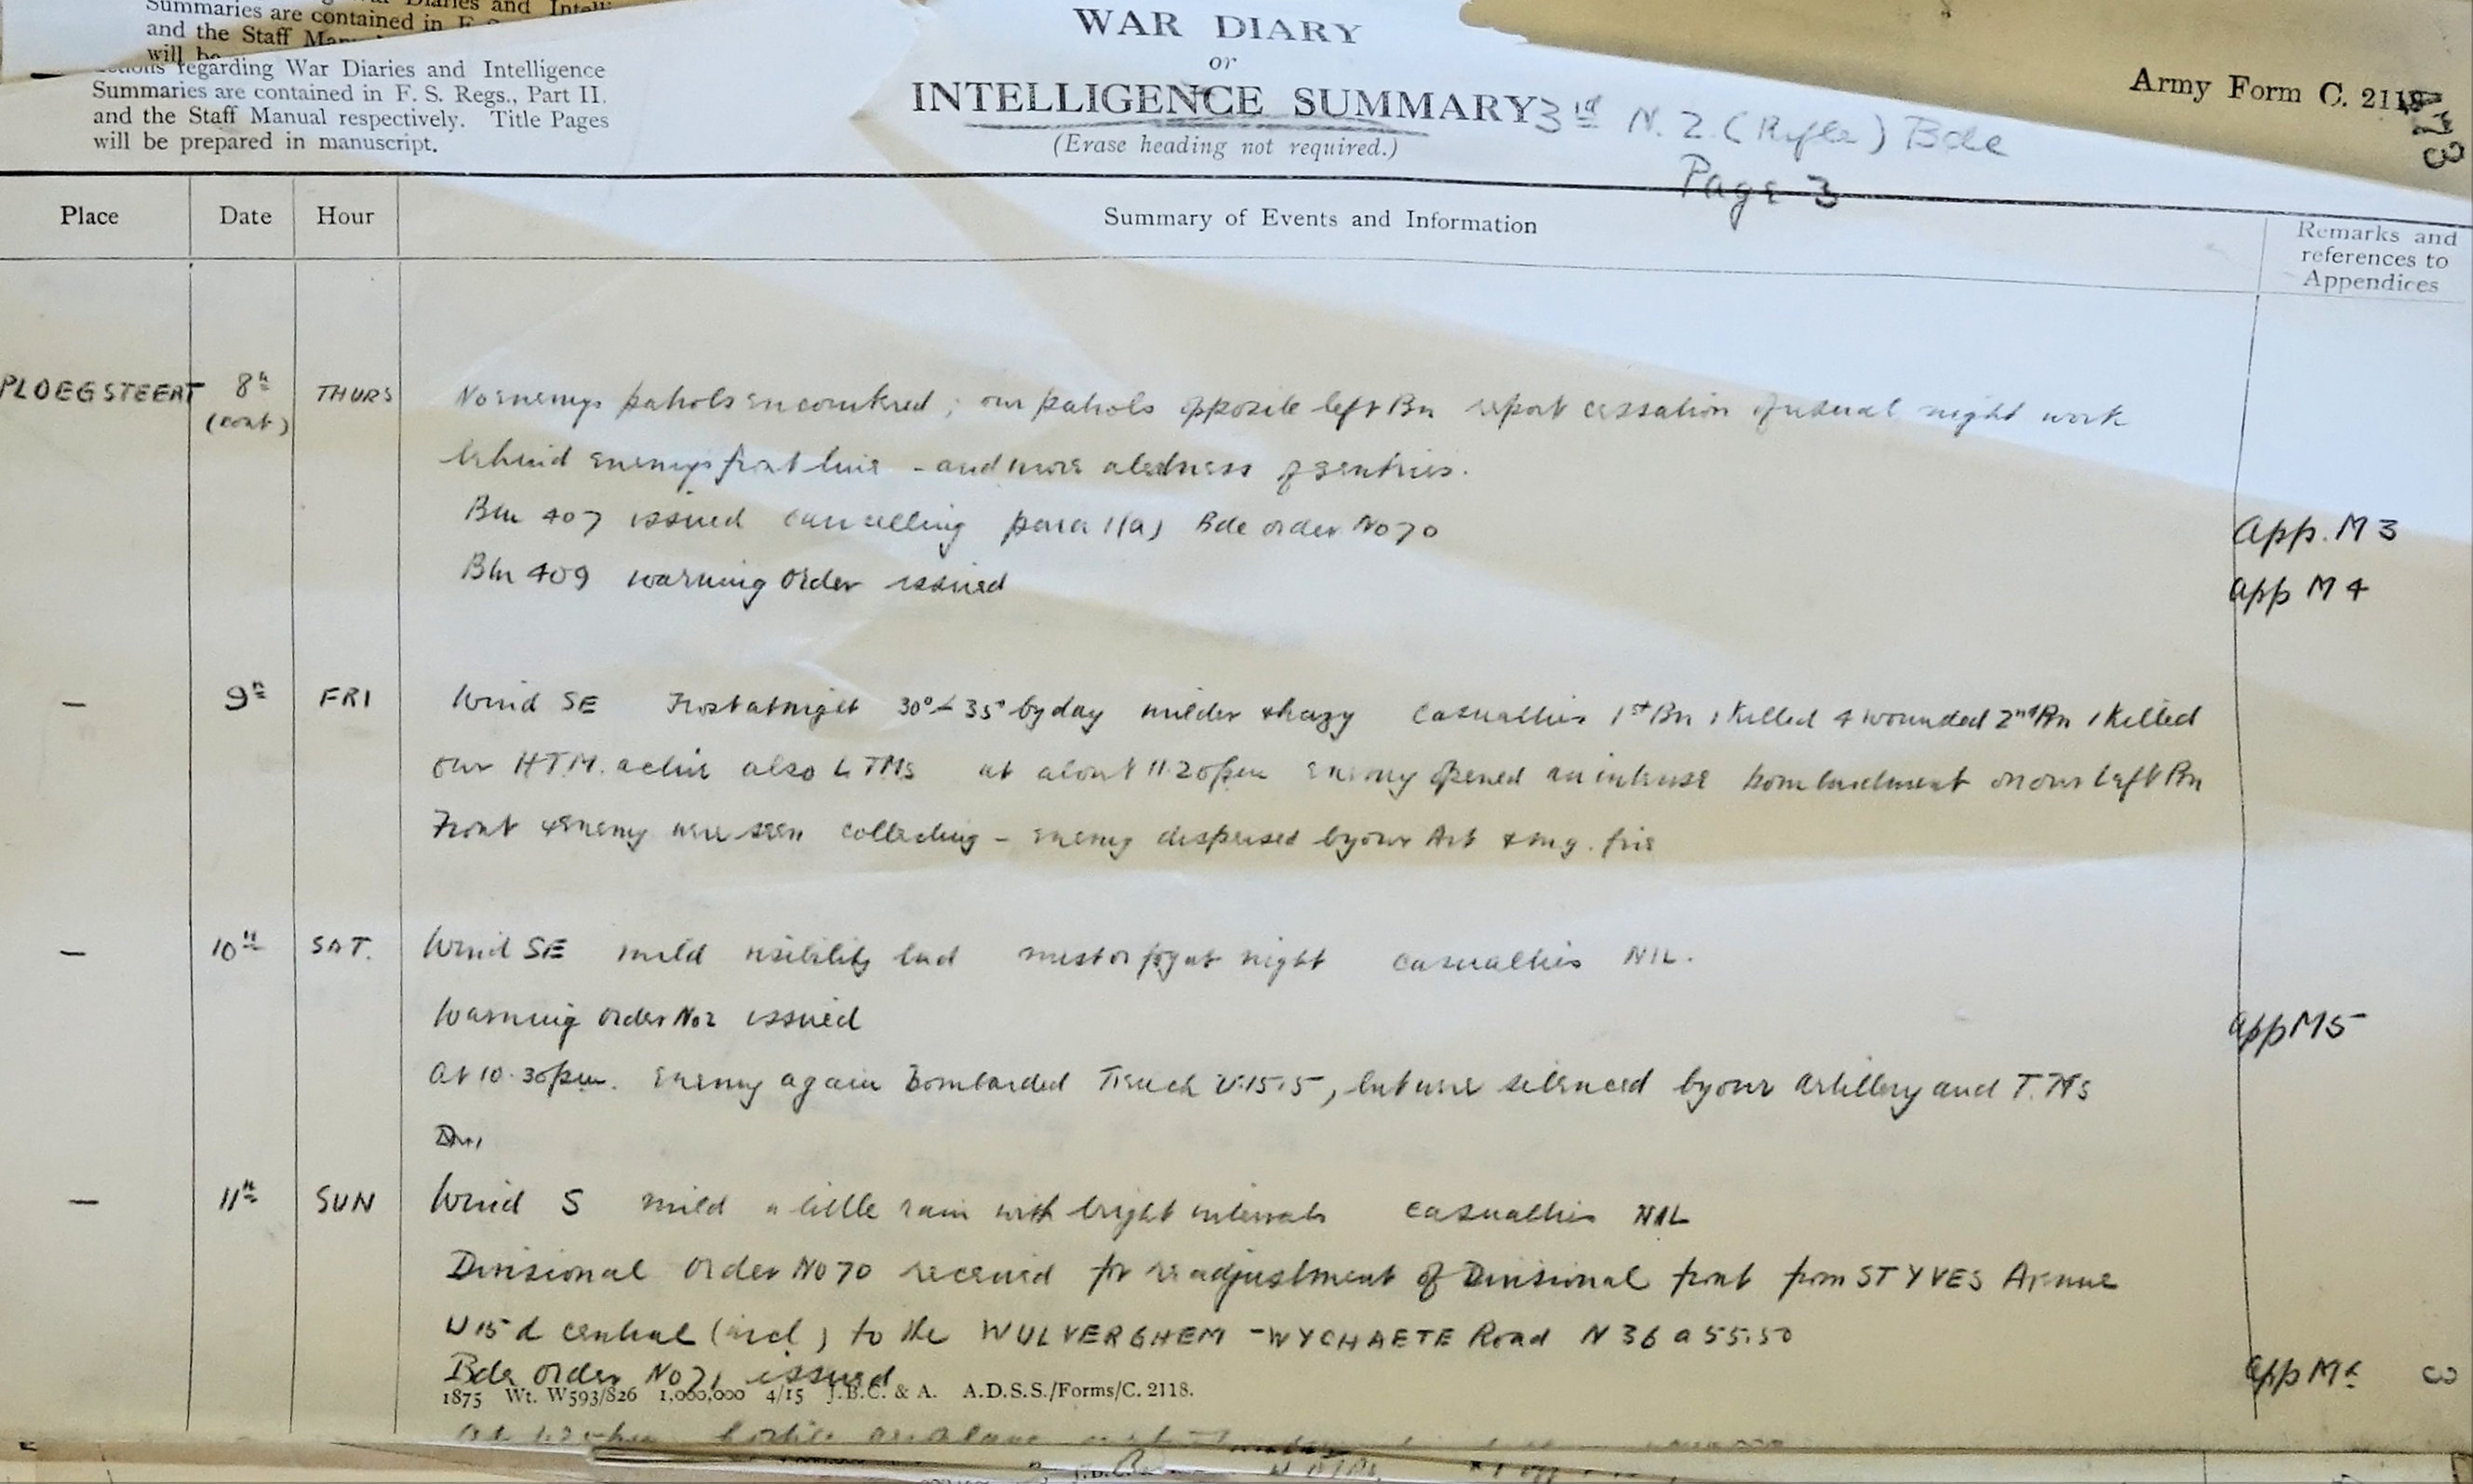 Summaries are contained in F. S.
and the Staff Man
will be
regarding War Diaries and Intelligence
Summaries are contained in F. S. Regs., Part II.
and the Staff Manual respectively. Title Pages
will be prepared in manuscript.
WAR DIARY
or
INTELLIGENCE SUMMARY
(Erase heading not required.)
3rd N.Z. (Rifle) Bde
Page 3
Army Form C. 2118
Place Date Hour Summary of Events and Information Remarks and references to Appendices
PLOEGSTEERT 8th (cont) THURS No enemys patrols encountered ; our patrols opposite left Bn report cessation of usual night work
behind enemys front line - and more alertness of sentries.
Bm 407 issued cancelling para 1(a) Bde order No 70 App. M 3
Bm 409 warning order issued App M 4
— 9th FRI Wind SE Frost at night 30°-35° by day milder & hazy Casualties 1st Bn 1 killed 4 wounded 2nd Bn 1 killed
our HTM. active also LTMs at about 11.20pm enemy opened an intense bombardment on our left Bn
Front & enemy were seen collecting - enemy dispersed by our Art & mg. fire
— 10th SAT. Wind SE mild visibility bad mist or fog at night casualties NIL.
Warning order No 2 issued App M5
At 10.30pm. enemy again bombarded Trench U.15.5, but were silenced by our artillery and T.Ms
— 11th SUN Wind S mild a little rain with bright intervals casualties NIL
Divisional order No 70 received for readjustment of Divisional front from ST YVES Avenue
U 15 d central (incl) to the WULVERGHEM - WYCHAETE Road N 36 a 55.50
Bde order No 71 issued App M6 3
1875 Wt. W593/826 1,000,000 4/15 J.B.C. & A. A.D.S.S./Forms/C. 2118.
hostile aeroplane